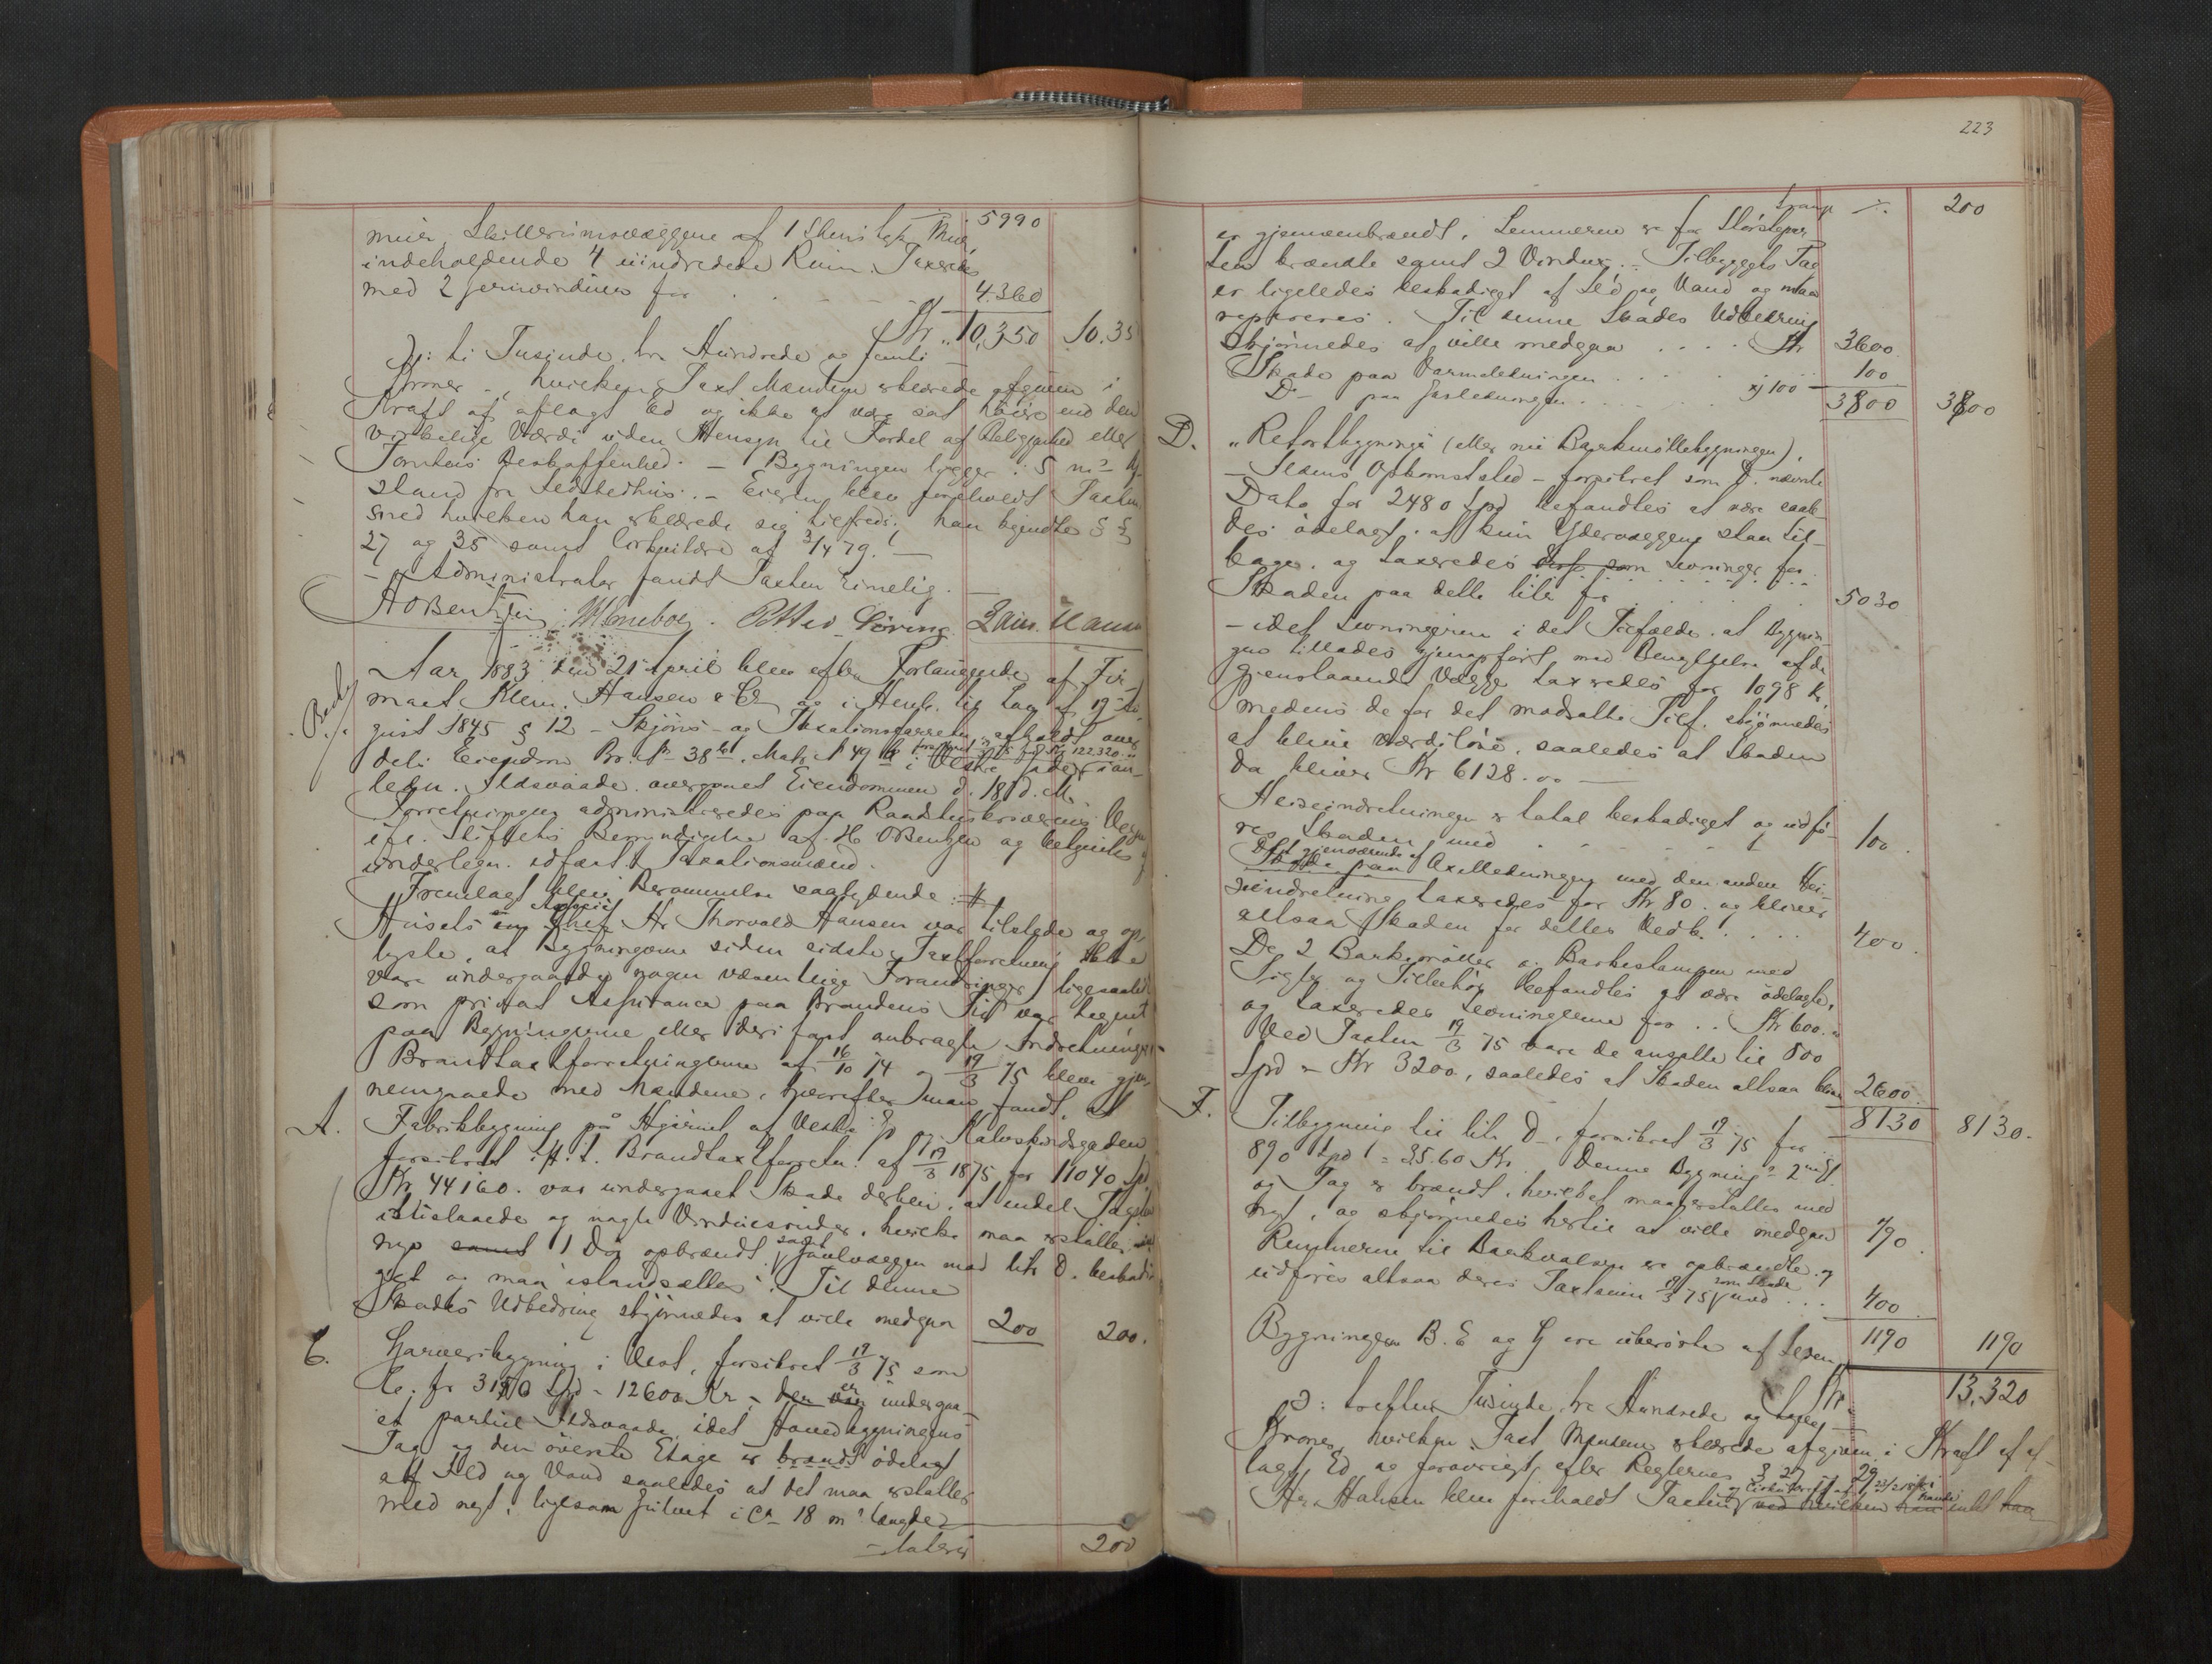 5990
muur, Skillerumsvæggene af 1 Stens tyk Muur,
indeholdende 4 uindredede Rum. Taxeredes
med 2 Jernvinduer for . . . 4.360
Kr. 10,350 10.35
ɔ: ti Tusinde, tre Hundrede og femti
Kroner, hvilken Taxt Mændene erklærede afgiven i
Kraft af aflagt Ed og ikke at være sat høiere end den
virkelige Værdi uden Hensyn til Fordel af Beliggenhed eller
Tomtens Beskaffenhed. – Bygningen ligger i 5 m
stand fra Ildstedhus. – Eieren blev foreholdt Taxten
med hvilken han erklærede sig tilfreds. han kjendte § §
27 og 35 samt Cirkulære af 3/4 79. –
– Administrator fandt Taxten rimelig. –
HOBentzen. Otter Løving Laur. Hansen
Aar 1883 den 21 April blev efter Forlangende af Fir-
maet Klem. Hansen & Co og i Henh. til Lov af 19 Au-
gust 1845 § 12 – Skjøns- og Taxationsforretn. afholdt over
forsikret 19/3 75 for Kr 122.320
dets Eiendom Br. No 38 b1, Matr. No 49 b i Vestre Gade, i an-
ledn. Ildsvaade overgaaet Eiendommen d. 18 d. M.
Forretningen administreredes paa Raadhusskriverens Vegne
ifl. Stiftets Bemyndigelse af H. OBentzen og betjentes af
underlegn. edfæst. Taxationsmænd.
Fremlagt blev Berammelse saalydende: #
Associé
Husets Chef Hr. Thorvald Hansen var tilstede og op-
lyste, at Bygningerne siden sidste Taxtforretning ikke
vare undergaaede nogen væsentlige Forandringer, ligesaalidt
som privat Assurance paa Brandens Tid var tegnet
paa Bygningerne eller deri fast anbragte Indretninger.
Brandtaxtforretningerne af 16/10 74 og 19/3 75 bleve gjen-
nemgaaede med Mændene, hvorefter man fandt, at
A. Fabrikbygning på Hjørnet af Vestre G. og Kalvskindsgaden
forsikret ifl. Brandtaxtforretn. af 19/3 1875 for 11040 Spd
Kr 44160. var undergaaet Skade derhen, at endel Tagsten
istuslaaede og nogle Vinduesruder, hvilke maa erstattes
nye samt 1 Dør opbrændt, samt Gavlvæggen mod litr D. beskadi-
get og maa istandsættes. Til denne
Skades Udbedring skjønnedes at ville medgaa 200 200.
C. Garveribygning i Vest, forsikret 19/3 75 som
C. for 3150 Spd – 12600 Kr, – den er undergaa-
et partiel Ildsvaade, idet Hovedbygningens
Tag og den øverste Etage er brændt ødelagt
af Ild og Vand saaledes at det maa erstattes
med nyt, ligesom Gulvet i Ca 18 m's længde
– lateris 200
223
transp ./. 200
er gjennembrændt. Lemmerne er for Størsteparten
ten brændte samt 2 Vinduer. – Tilbyggets Tag
er ligeledes beskadiget af Ild og Vand og maa
repareres. Til denne Skades Udbedring
skjønnedes at ville medgaa . . . . Kr 3600
Skade paa Varmeledningen . . . 100
Do paa Gasledningen . . . 100
3800 3800
D. "Retortbygning" (eller nu Barkmøllebygningen),
– Ildens Opkomststed – forsikret som D. nævnte
Dato for 2480 Spd befandtes at være saale-
des ødelagt, at kun Ydervæggene staa til-
bage, og taxeredes som Levninger for . . .
Skaden paa dette litr for . . . 5030
– idet Levningerne i det Tilfælde, at Bygnin-
gen tillades gjenopført med Benyttelse af de
gjenstaaende Vægge taxeredes for 1098 Kr,
medens de for det modsatte Tilf. skjønnedes
at blive værdiløse, saaledes at Skaden
da bliver Kr 6128.00 –
Heiseindretningen er total beskadiget og udfø-
res Skaden med . . . 100.
Det gjenværende af
Skade paa Axelledningen med den anden Hei-
seindretning taxeredes for Kr 80. og bliver
altsaa Skaden for dettes Vedk. . . . 400.
De 2 Barkmøller og Barkestampen med
Sigter og Tilbehør befandtes at være ødelagte,
og taxeredes Levningerne for . . Kr 600.
Ved Taxten 19/3 75 vare de ansatte til 800
Spd – Kr 3200, saaledes at Skaden altsaa blev 2600.
8130 8130.
F. Tilbygning til litr D, forsikret 19/3 75 for
890 Spd = 3560 Kr. Denne Bygning's 2den Et.
og Tag er brændt, hvilket maa erstattes med
nyt, og skjønnedes hertil at ville medgaa 790.
Rendnerne til Barkvalsen er opbrændte og
som Skade
udføres altsaa deres Taxtsum 19/3 75 med . . . 400
1190 1190
Bygningerne B. E og G ere uberørte af Ilden.
Kr 13,320
ɔ: tretten Tusinde, tre Hundrede og tyve
Kroner, hvilken Taxt Mændene erklærede afgiven i Kraft af af-
lagt Ed og forøvrigt efter Reglernes § 27 29
Hr. Hansen blev foreholdt Taxten